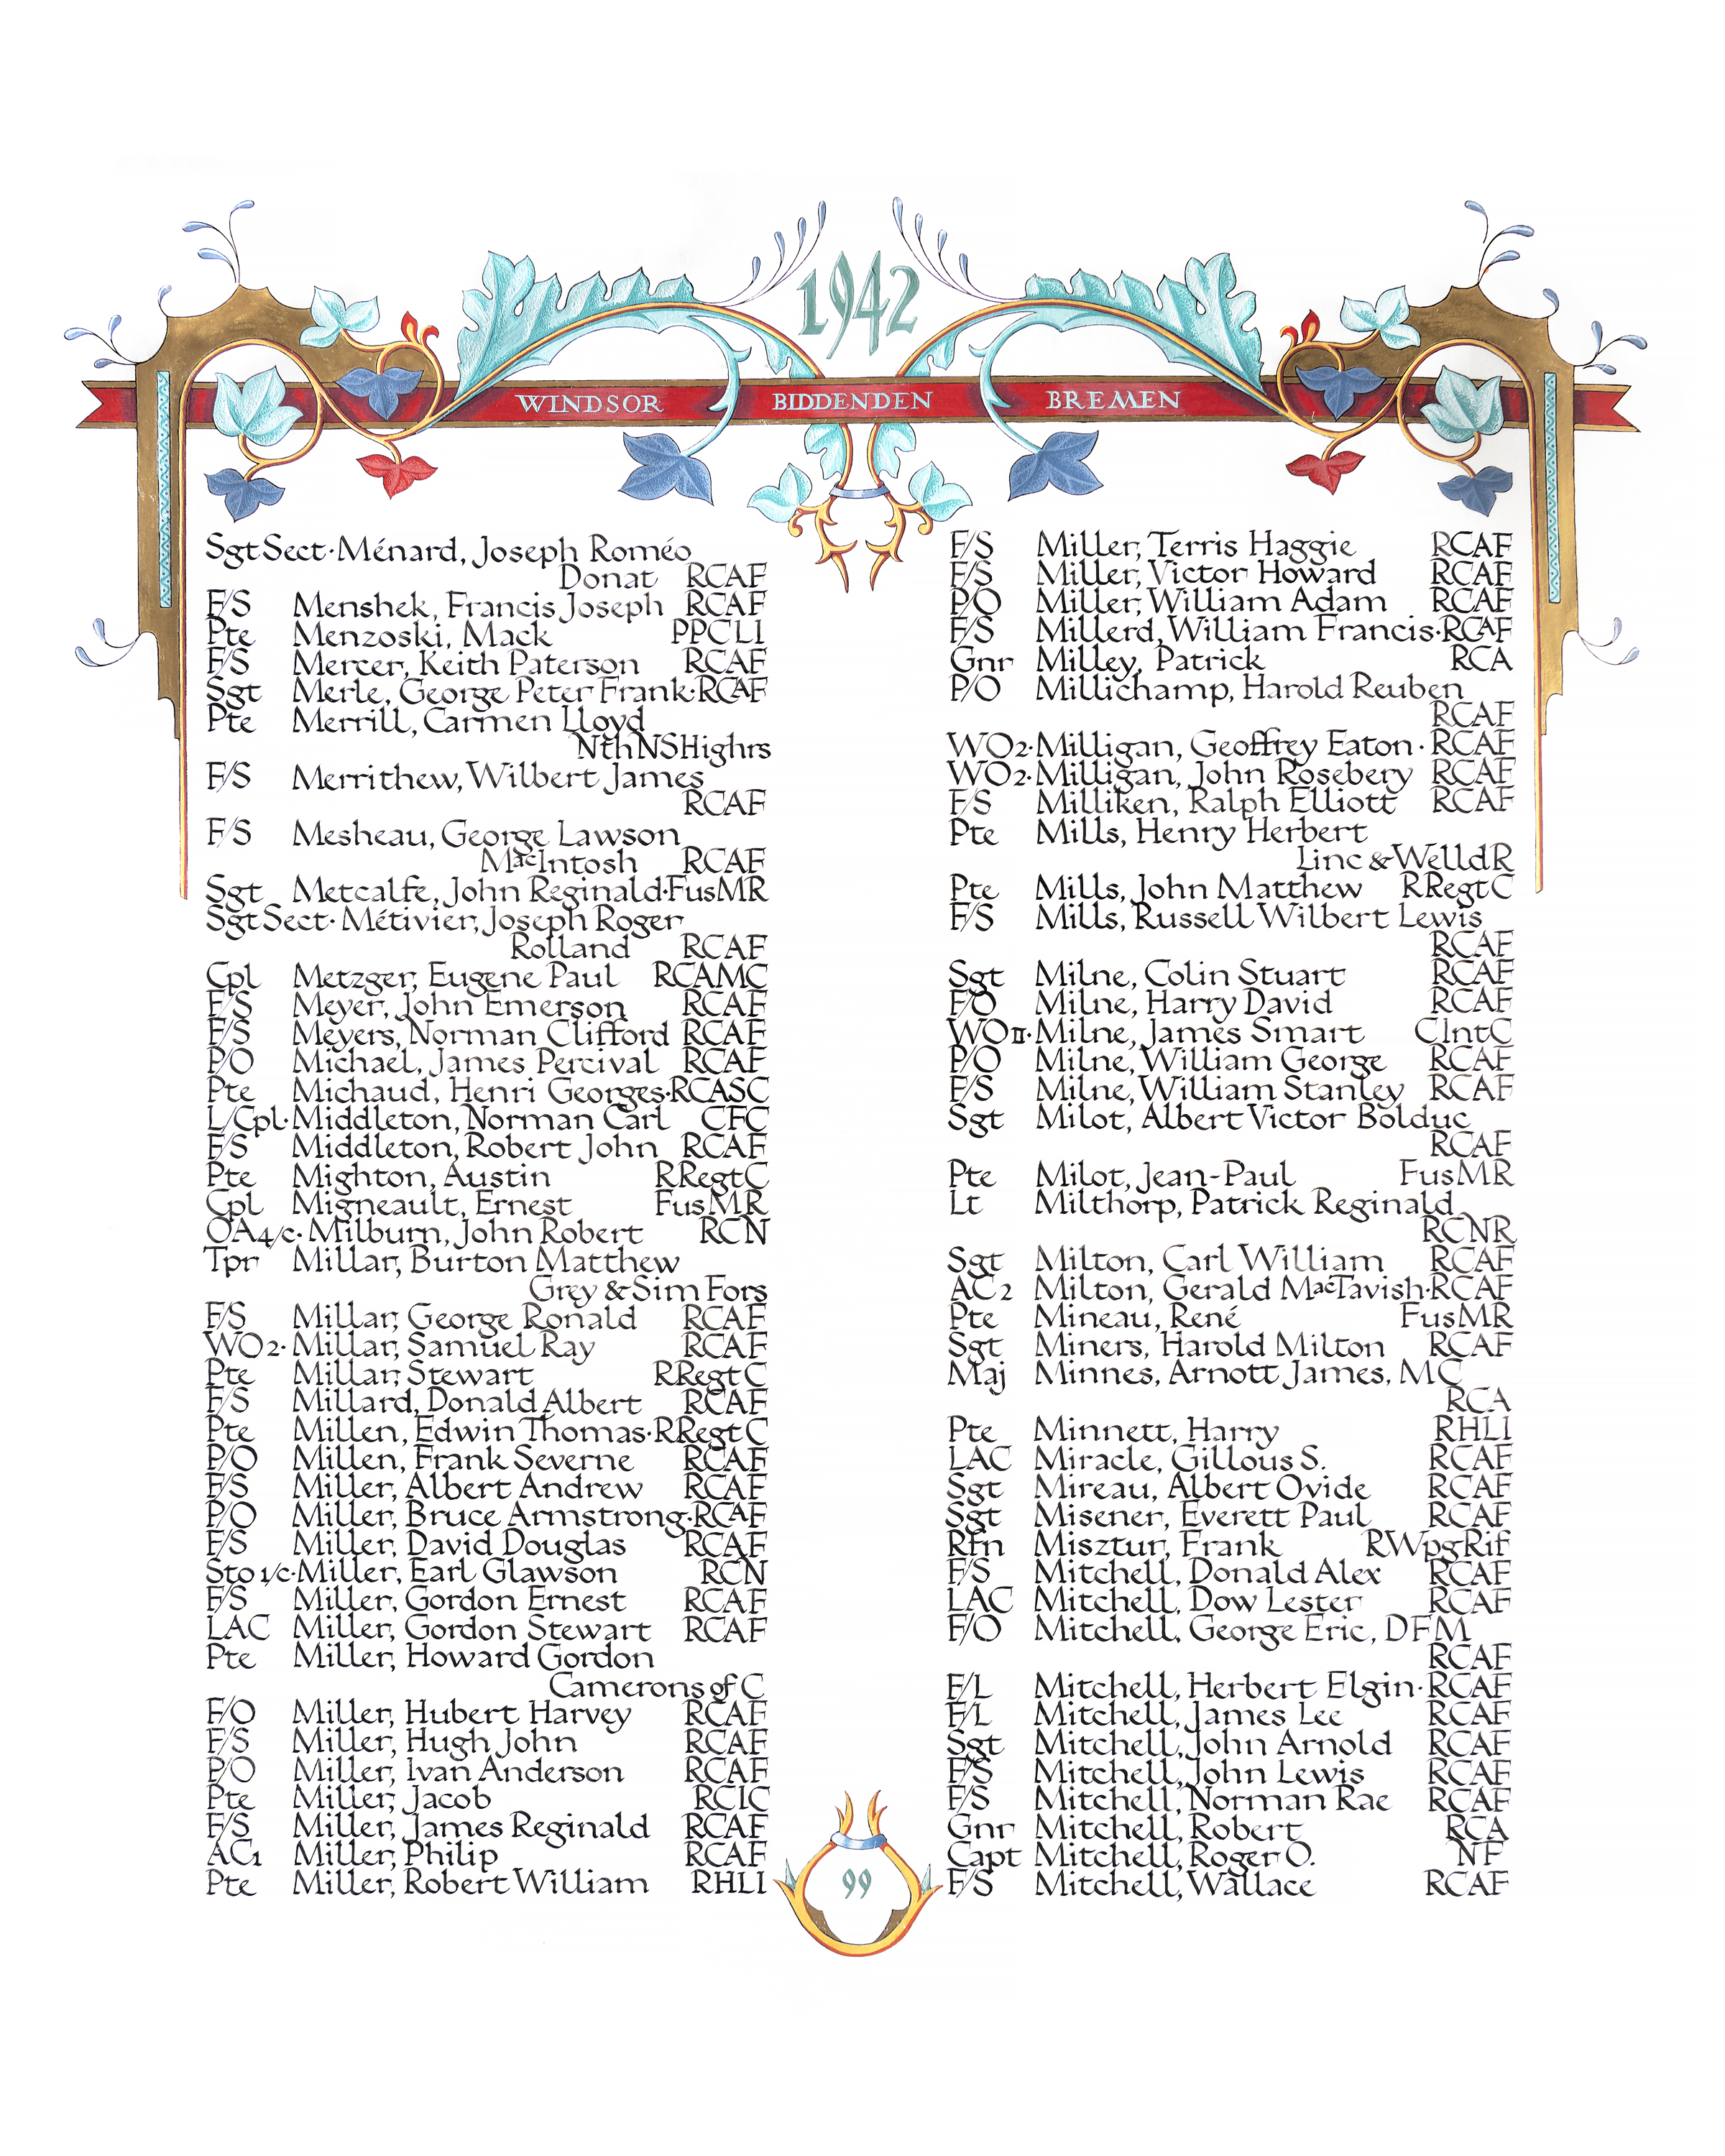 1942
WINDSOR BIDDENDEN BREMEN
Sgt Sect·Ménard, Joseph Roméo
Donat RCAF
F/S Menshek, Francis Joseph RCAF
Pte Menzoski, Mack PPCLI
F/S Mercer, Keith Paterson RCAF
Sgt Merle, George Peter Frank·RCAF
Pte Merrill, Carmen Lloyd
NthNSHighrs
F/S Merrithew, Wilbert James
RCAF
F/S Mesheau, George Lawson
MacIntosh RCAF
Sgt Metcalfe, John Reginald·FusMR
Sgt Sect·Métivier, Joseph Roger
Rolland RCAF
Cpl Metzger, Eugene Paul RCAMC
F/S Meyer, John Emerson RCAF
F/S Meyers, Norman Clifford RCAF
P/O Michael, James Percival RCAF
Pte Michaud, Henri Georges·RCASC
L/Cpl·Middleton, Norman Carl CFC
F/S Middleton, Robert John RCAF
Pte Mighton, Austin RRegtC
Cpl Migneault, Ernest FusMR
OA4/c·Milburn, John Robert RCN
Tpr Millar, Burton Matthew
Grey & Sim Fors
F/S Millar, George Ronald RCAF
WO2·Millar, Samuel Ray RCAF
Pte Millar, Stewart RRegtC
F/S Millard, Donald Albert RCAF
Pte Millen, Edwin Thomas·RRegtC
P/O Millen, Frank Severne RCAF
F/S Miller, Albert Andrew RCAF
P/O Miller, Bruce Armstrong·RCAF
F/S Miller, David Douglas RCAF
Sto 1/c·Miller, Earl Glawson RCN
F/S Miller, Gordon Ernest RCAF
LAC Miller, Gordon Stewart RCAF
Pte Miller, Howard Gordon
Camerons of C
F/O Miller, Hubert Harvey RCAF
F/S Miller, Hugh John RCAF
P/O Miller, Ivan Anderson RCAF
Pte Miller, Jacob RCIC
F/S Miller, James Reginald RCAF
AC1 Miller, Philip RCAF
Pte Miller, Robert William RHLI
F/S Miller, Terris Haggie RCAF
F/S Miller, Victor Howard RCAF
P/O Miller, William Adam RCAF
F/S Millerd, William Francis·RCAF
Gnr Milley, Patrick RCA
P/O Millichamp, Harold Reuben
RCAF
WO2·Milligan, Geoffrey Eaton·RCAF
WO2·Milligan, John Rosebery RCAF
F/S Milliken, Ralph Elliott RCAF
Pte Mills, Henry Herbert
Linc & WelldR
Pte Mills, John Matthew RRegtC
F/S Mills, Russell Wilbert Lewis
RCAF
Sgt Milne, Colin Stuart RCAF
F/O Milne, Harry David RCAF
WOII·Milne, James Smart CIntC
P/O Milne, William George RCAF
F/S Milne, William Stanley RCAF
Sgt Milot, Albert Victor Bolduc
RCAF
Pte Milot, Jean-Paul FusMR
Lt Milthorp, Patrick Reginald
RCNR
Sgt Milton, Carl William RCAF
AC2 Milton, Gerald MacTavish·RCAF
Pte Mineau, René FusMR
Sgt Miners, Harold Milton RCAF
Maj Minnes, Arnott James, MC
RCA
Pte Minnett, Harry RHLI
LAC Miracle, Gillous S. RCAF
Sgt Mireau, Albert Ovide RCAF
Sgt Misener, Everett Paul RCAF
Rfn Misztur, Frank RWpgRif
F/S Mitchell, Donald Alex RCAF
LAC Mitchell, Dow Lester RCAF
F/O Mitchell, George Eric, DFM
RCAF
F/L Mitchell, Herbert Elgin·RCAF
F/L Mitchell, James Lee RCAF
Sgt Mitchell, John Arnold RCAF
F/S Mitchell, John Lewis RCAF
F/S Mitchell, Norman Rae RCAF
Gnr Mitchell, Robert RCA
Capt Mitchell, Roger O. NF
F/S Mitchell, Wallace RCAF
99